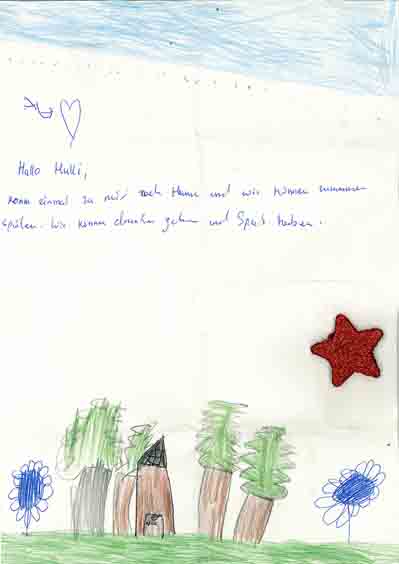 Hallo Mulli,
komm einmal zu mir nach Hause und wir können zusammen
spielen. Wir können draußen gehen und Spaß haben.